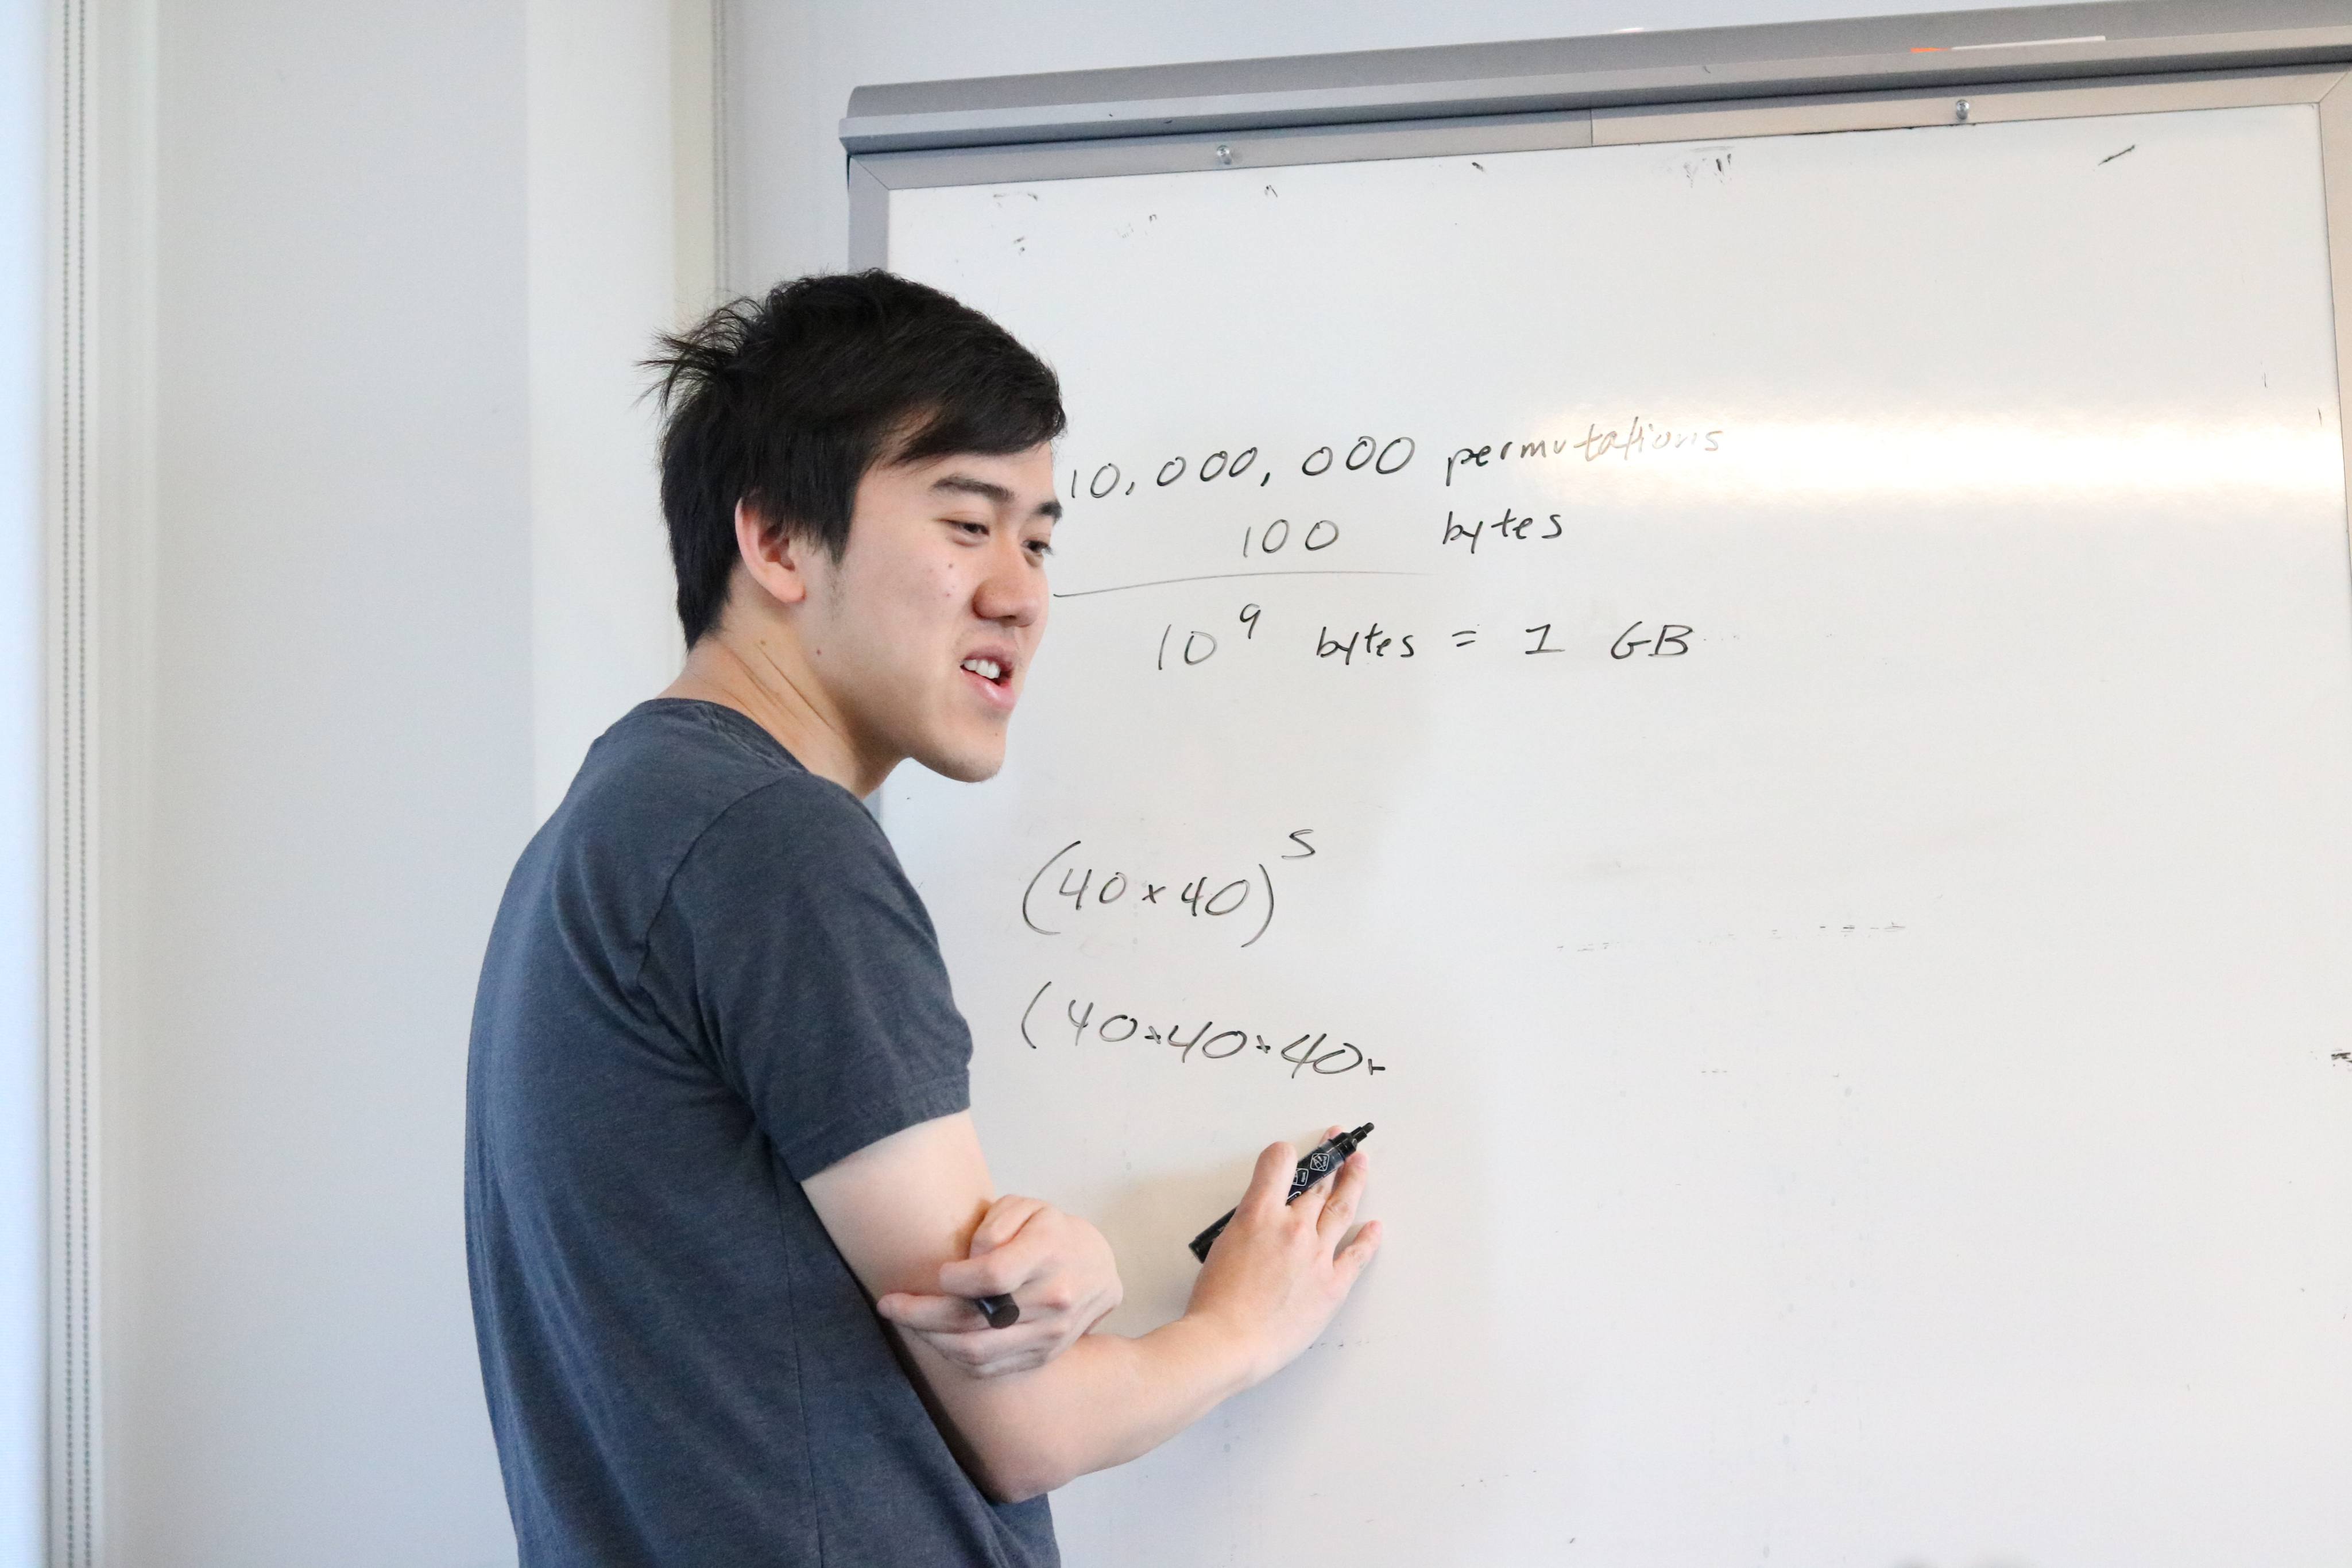 10,000,000 permutations
100 bytes
10⁹ bytes = 1 GB
(40×40)⁵
(40×40×40×